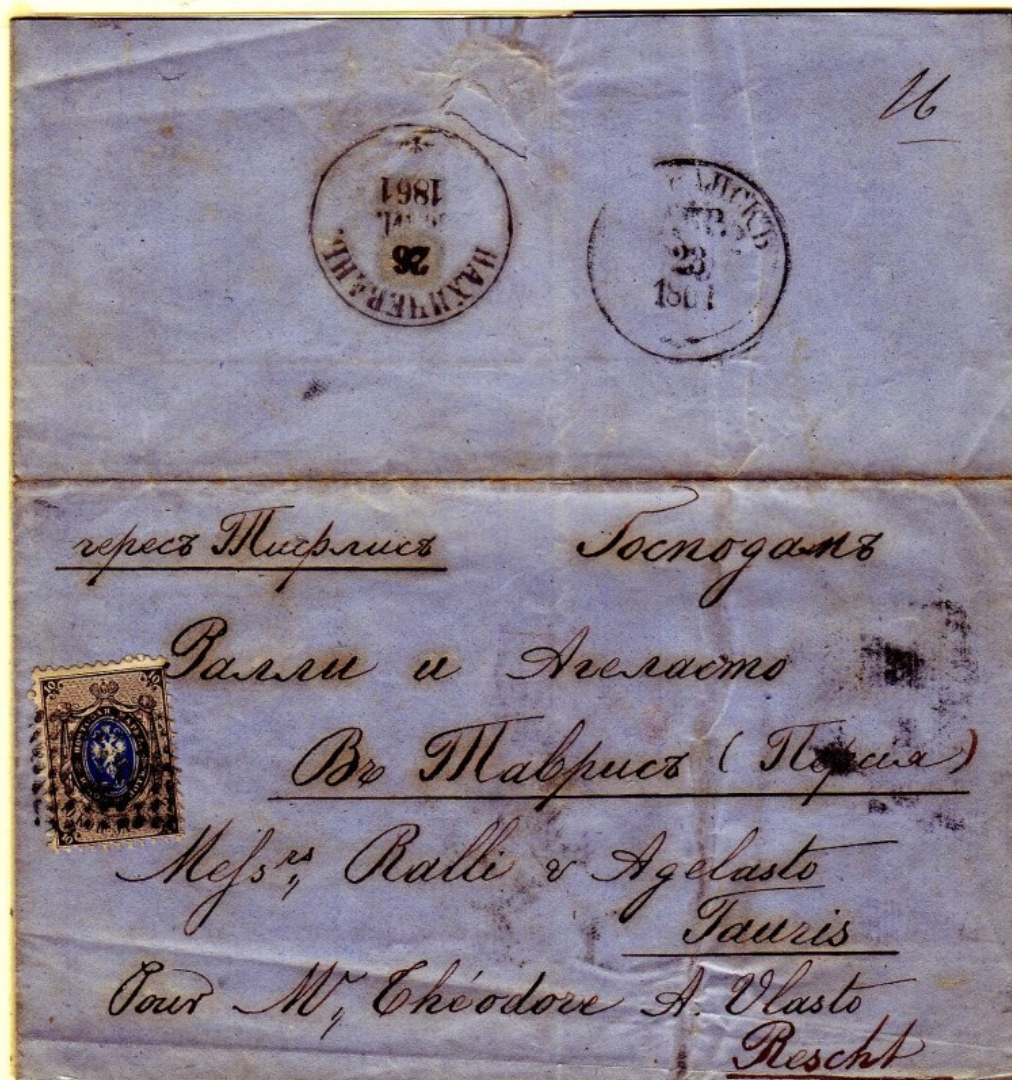 16
НАХИЧЕВАНЬ.
26
1861
23
1861
чересъ Тифлисъ Господамъ
Ралли и Агеласто
Въ Таврисъ (Персия)
Messrs, Ralli & Agelasto
Tauris
Pour Mr, Théodore A. Vlasto
Rescht
10 10